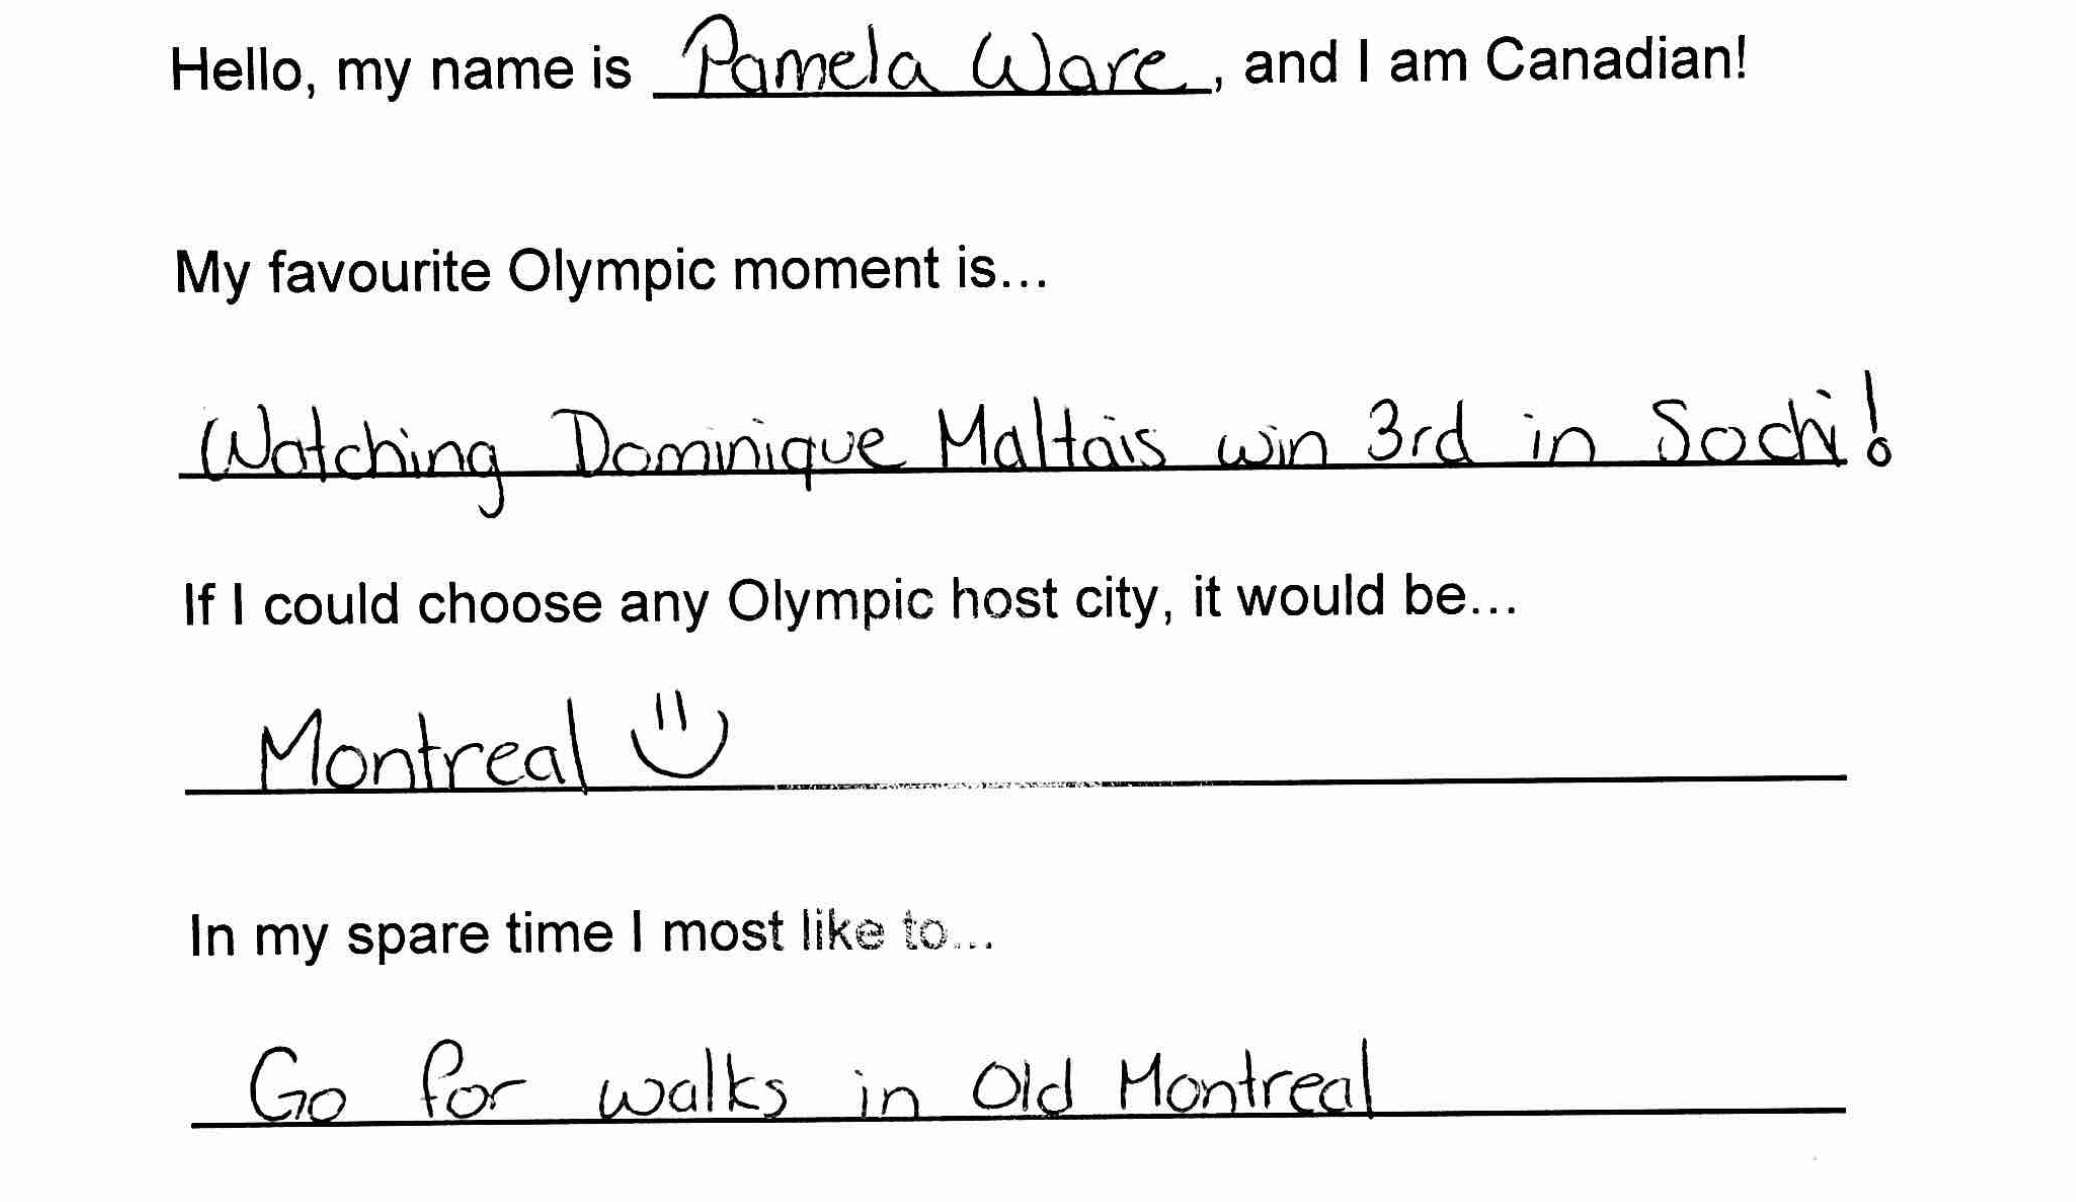 Hello, my name is Pamela Ware, and I am Canadian!
My favourite Olympic moment is...
Watching Dominique Maltais win 3rd in Sochi!
If I could choose any Olympic host city, it would be...
Montreal
In my spare time I most like to...
Go for walks in Old Montreal